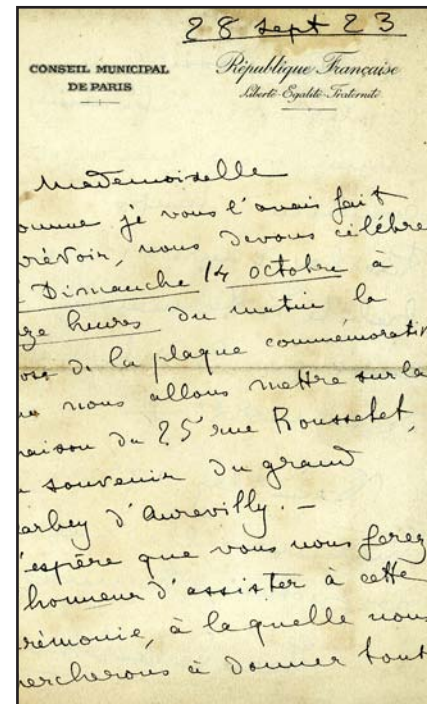 28 sept 23
CONSEIL MUNICIPAL
DE PARIS
République Française
Liberté-Egalité-Fraternité
Mademoiselle
omme je vous l'avais fait
révoir, nous devons célébre
Dimanche 14 octobre à
ze heures du matin la
ose de la plaque commémorativ
nous allons mettre sur la
aison du 25 rue Rousselet,
souvenir du grand
arbey d'Aurevilly. —
'espère que vous nous ferez
honneur d'assister à cette
rémonie, à laquelle nous
hercherons à donner tout